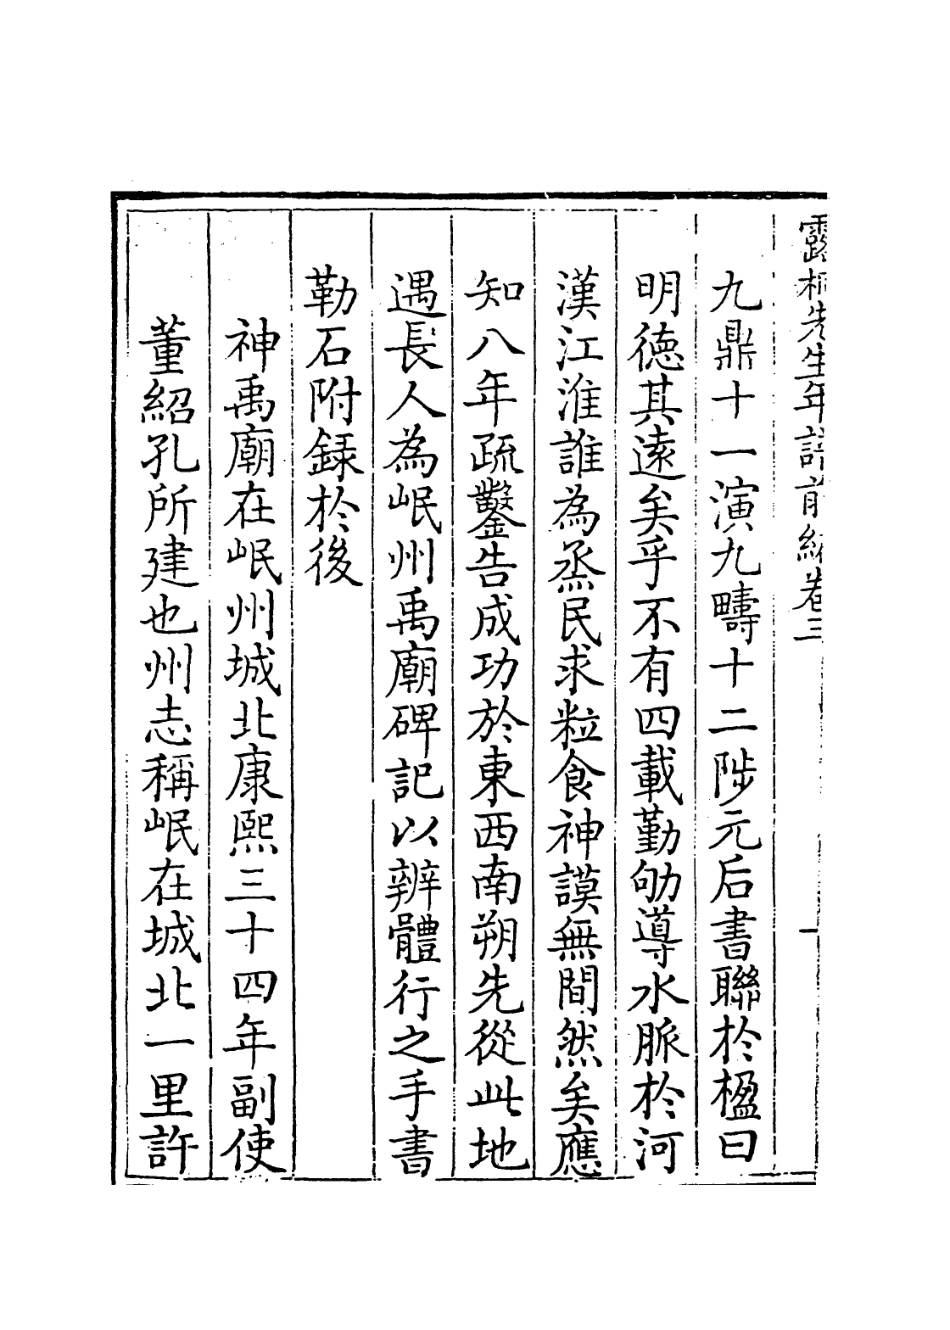 露桐先生年譜前編卷三
一
九鼎十一演九疇十二陟元后書聯於楹曰
明德其遠矣乎不有四載勤劬導水脈於河
漢江淮誰為烝民求粒食神謨無間然矣應
知八年疏鑿告成功於東西南朔先從此地
遇長人為岷州禹廟碑記以辨體行之手書
勒石附録於後
神禹廟在岷州城北康熙三十四年副使
董紹孔所建也州志稱岷在城北一里許